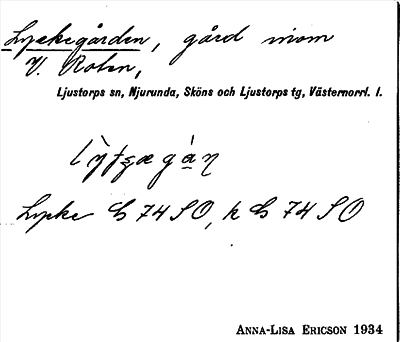 Lyckegården, gård inom
V. Roten,
Ljustorps sn, Njurunda, Sköns och Ljustorps tg, Västernorrl. l.
Lycke G 74 SO, k G 74 SO
ANNA-LISA ERICSON 1934